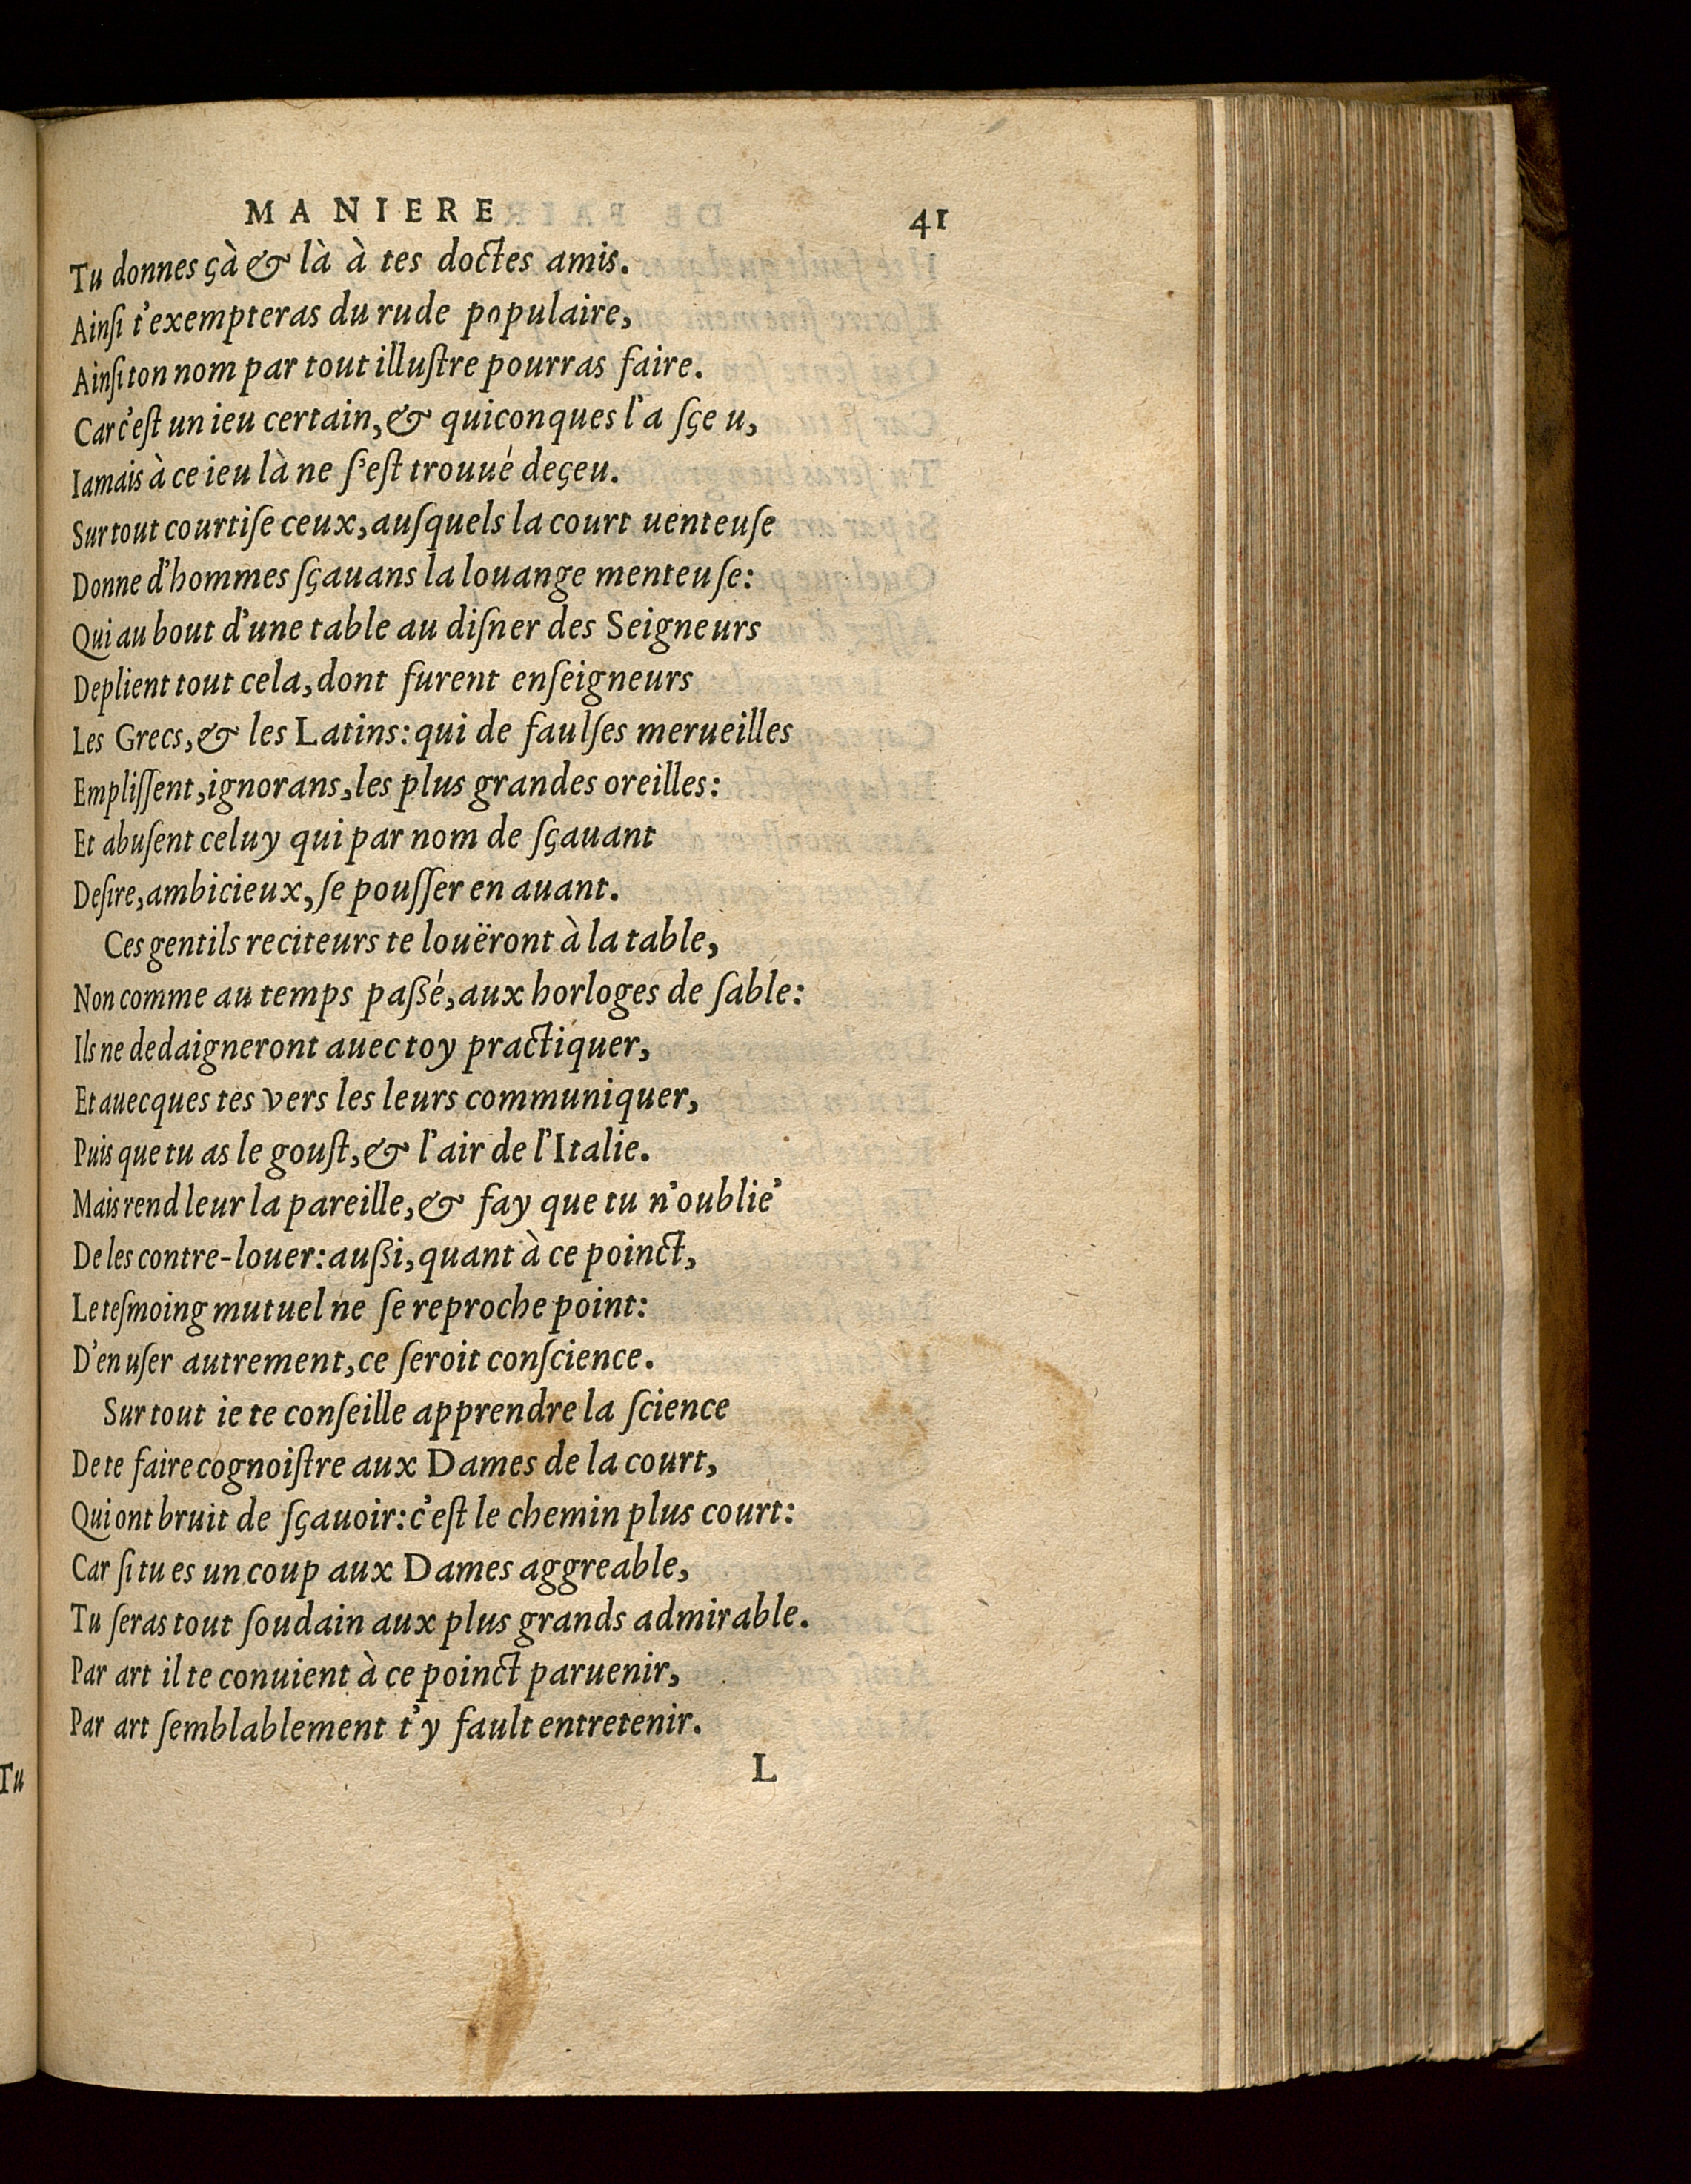 MANIERE 41
Tu donnes çà & là à tes doctes amis.
Ainſi t'exempteras du rude populaire,
Ainſi ton nom par tout illuſtre pourras faire.
Car c'eſt un ieu certain, & quiconques l'a ſçe u,
Iamais à ce ieu là ne ſ'eſt trouué deçeu.
Sur tout courtiſe ceux, auſquels la court uenteuſe
Donne d'hommes ſçauans la louange menteuſe:
Qui au bout d'une table au diſner des Seigneurs
Deplient tout cela, dont furent enſeigneurs
Les Grecs, & les Latins: qui de faulſes merueilles
Empliſſent, ignorans, les plus grandes oreilles:
Et abuſent celuy qui par nom de ſçauant
Deſire, ambicieux, ſe pouſſer en auant.
Ces gentils reciteurs te louëront à la table,
Non comme au temps paßé, aux horloges de ſable:
Ils ne dedaigneront auec toy practiquer,
Et auecques tes vers les leurs communiquer,
Puis que tu as le gouſt, & l'air de l'Italie.
Mais rend leur la pareille, & fay que tu n'oublie'
De les contre-louer: außi, quant à ce poinct,
Le teſmoing mutuel ne ſe reproche point:
D'en uſer autrement, ce ſeroit conſcience.
Sur tout ie te conſeille apprendre la ſcience
De te faire cognoiſtre aux Dames de la court,
Qui ont bruit de ſçauoir: c'eſt le chemin plus court:
Car ſi tu es un coup aux Dames aggreable,
Tu ſeras tout ſoudain aux plus grands admirable.
Par art il te conuient à ce poinct paruenir,
Par art ſemblablement t'y fault entretenir.
L
Tu